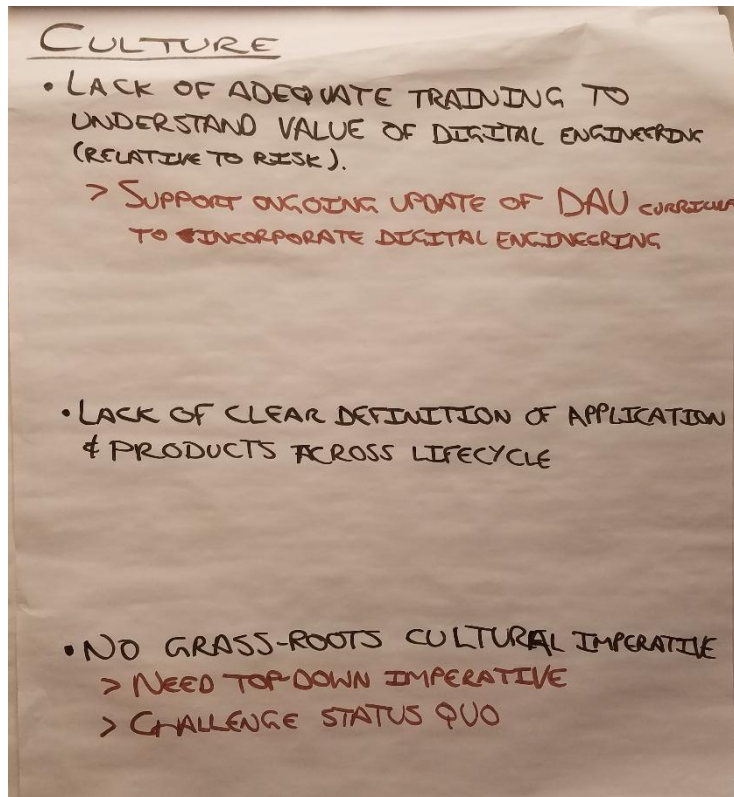 CULTURE
• LACK OF ADEQUATE TRAINING TO
UNDERSTAND VALUE OF DIGITAL ENGINEERING
(RELATIVE TO RISK).
> SUPPORT ONGOING UPDATE OF DAU CURRICULA
TO INCORPORATE DIGITAL ENGINEERING
• LACK OF CLEAR DEFINITION OF APPLICATION
& PRODUCTS ACROSS LIFECYCLE
• NO GRASS-ROOTS CULTURAL IMPERATIVE
> NEED TOP-DOWN IMPERATIVE
> CHALLENGE STATUS QUO